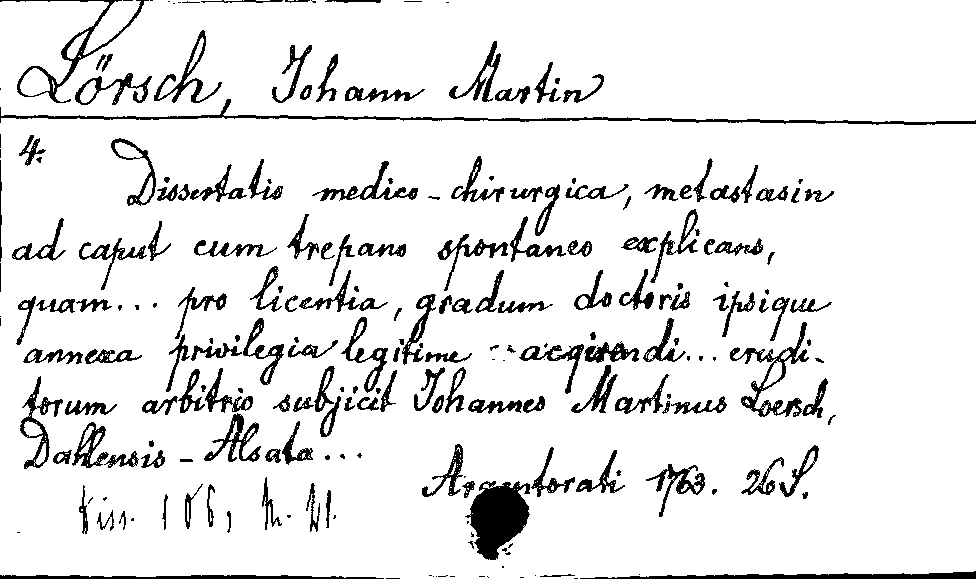 Lörsch, Johann Martin
4.
Dissertatio medico-chirurgica, metastasin
ad caput cum trepano spontaneo explicans,
quam... pro licentia, gradum doctoris ipsique
annexa privilegia legitime acqirendi... erudi-
torum arbitrio subjicit Johannes Martinus Loersch,
Dahlensis-Alsata...
Argentorati 1763. 26 S.
Diss. 106, N. 21.